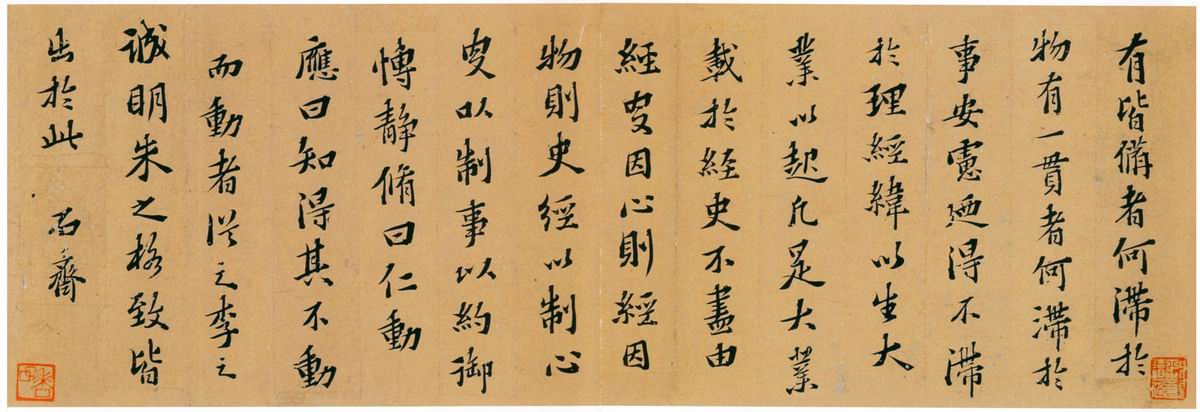 有皆備者何滯於
物有一貫者何滯於
事安慮廼得不滯
於理經緯以生大
業以起凡是大業
載於經史不盡由
經史因心則經因
物則史經以制心
史以制事以約御
博靜脩曰仁動
應曰知得其不動
而動者從之李之
誠明朱之格致皆
出於此
齋